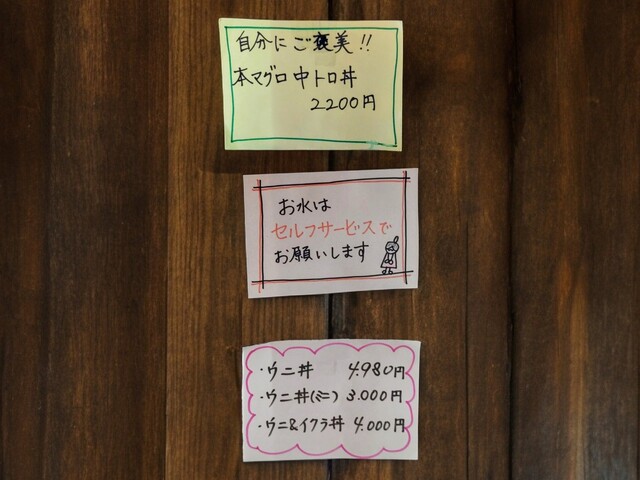 自分にご褒美!!
本マグロ中トロ丼
2200円
お水は
セルフサービスで
お願いします
・ウニ丼 4.980円
・ウニ丼(ミニ) 3.000円
・ウニ&イクラ丼 4.000円